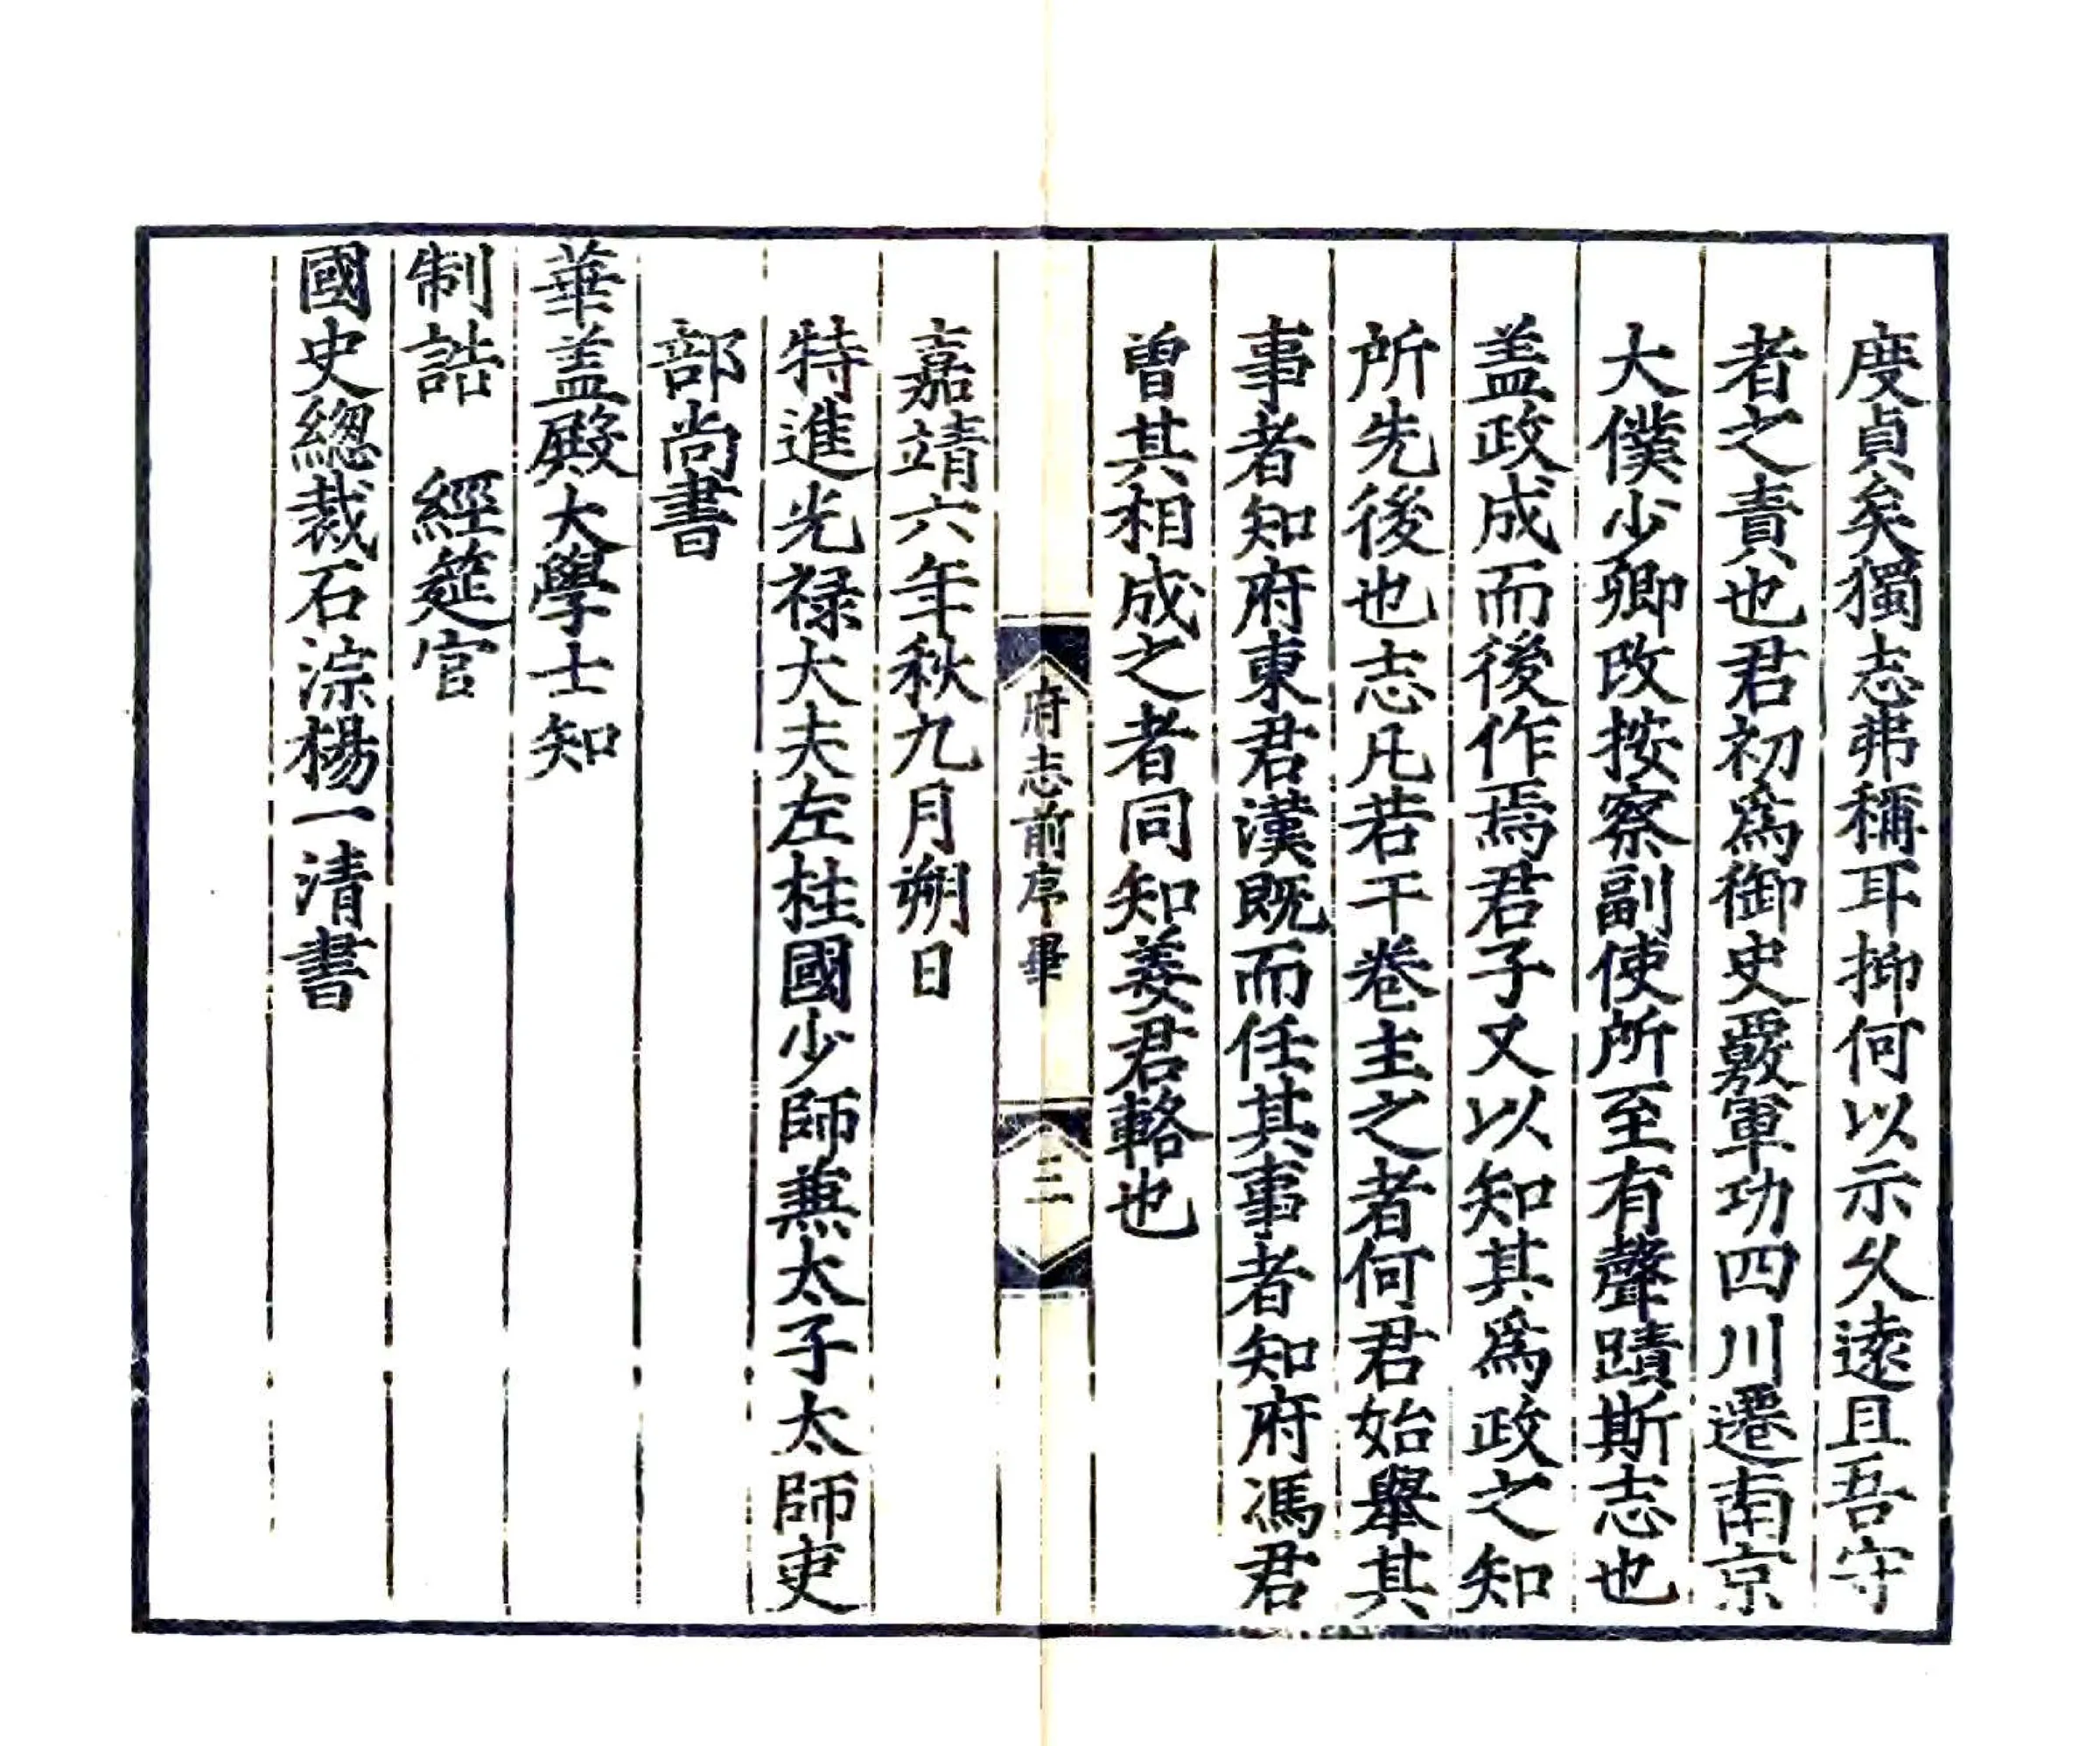 度貞矣獨志弗稱耳抑何以示久遠且吾守
者之責也君初為御史覈軍功四川遷南京
大僕少卿改按察副使所至有聲蹟斯志也
盖政成而後作焉君子又以知其為政之知
所先後也志凡若干卷主之者何君始舉其
事者知府東君漢既而任其事者知府馮君
曽其相成之者同知姜君輅也
府志前序畢
三
嘉靖六年秋九月朔日
特進光祿大夫左柱國少師兼太子太師吏
部尚書
華盖殿大學士知
制誥　經筵官
國史緫裁石淙楊一清書